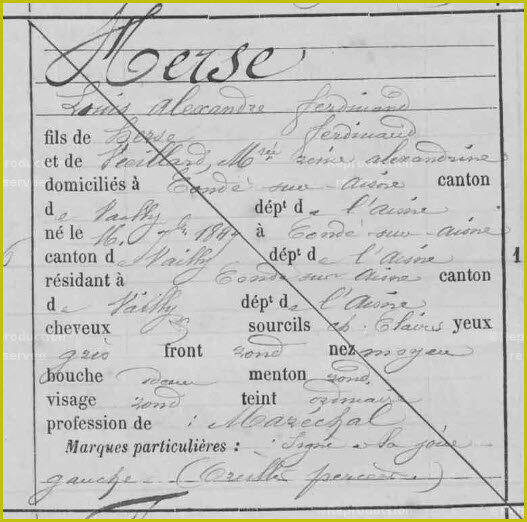 Herse
Louis Alexandre Ferdinand
fils de Herse Ferdinand
et de Vieillard, Mrie reine alexandrine
domiciliés à Condé-sur-aisne canton
de Vailly dépt de l'aisne
né le 16. 7bre 18 à Condé-sur-aisne
canton de Vailly dépt de l'aisne
résidant à Condé sur aisne canton
de Vailly dépt de l'aisne
cheveux sourcils ch. Clairs yeux
gris front rond nez moyen
bouche menton rond
visage rond teint ordinaire
profession de : Maréchal
Marques particulières : Signe à la joue
gauche (Oreilles percées)
1